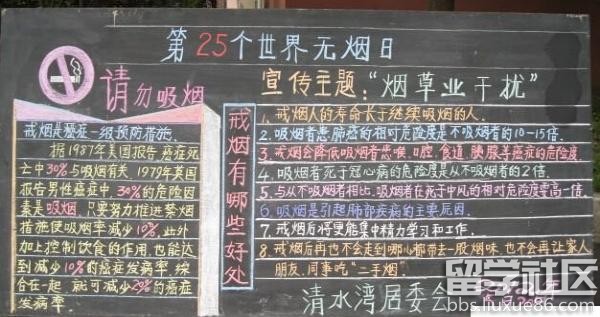 第25个世界无烟日
请勿吸烟
宣传主题：“烟草业干扰”
戒烟是癌症一级预防措施.
据1987年美国报告癌症死
亡中30%与吸烟有关,1979年英国
报告男性癌症中,30%的危险因
素是吸烟,只要努力推进禁烟
措施使吸烟率减少10%,此外
加上控制饮食的作用,也能达
到减少10%的癌症发病率,综
合在一起,就可减少20%的癌症
发病率
戒烟有哪些好处
1.戒烟人的寿命长于继续吸烟的人.
2.吸烟者患肺癌的相对危险度是不吸烟者的10-15倍.
3.戒烟会降低吸烟者患喉、口腔、食道、胰腺等癌症的危险度.
4.吸烟者死于冠心病的危险度是从不吸烟者的2倍.
5.与从不吸烟者相比,吸烟者在死于中风的相对危险度要高一倍.
6.吸烟是引起肺部疾病的主要死因.
7.戒烟后将便能集中精力学习和劳动.
8.戒烟后再也不会走到哪儿都带去一股烟味,也不会再让家人
朋友、同事吃“二手烟”.
清水湾居委会
留学社区
bbs.liuxue86.com